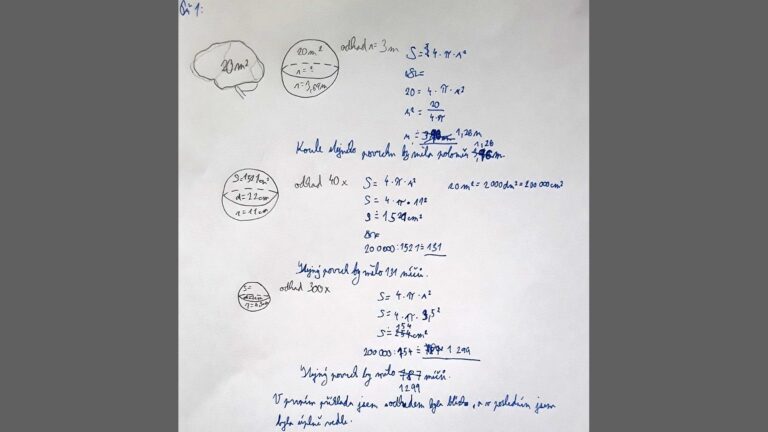 Př 1:
20 m²
20 m²
r = ?
odhad r = 3 m
S = 4 · π · r²
20 = 4 · π · r²
r² = 20 / 4 · π
r ≐ 1,26 m
Koule stejného povrchu by měla poloměr 1,26 m.
S = 1521 cm²
d = 22 cm
r = 11 cm
odhad 40 x
S = 4 · π · r²
20 m² = 2 000 dm² = 200 000 cm²
S = 4 · π · 11²
S ≐ 1 521 cm²
200 000 : 1521 ≐ 131
Stejný povrch by mělo 131 míčů.
S =
odhad 300 x
S = 4 · π · r²
S = 4 · π · 3,5²
S ≐ 154 cm²
200 000 : 154 ≐ 1 299
Stejný povrch by mělo 1299 míčů.
V prvním příkladu jsem odhadem byla blízko, a v posledním jsem
byla úplně vedle.